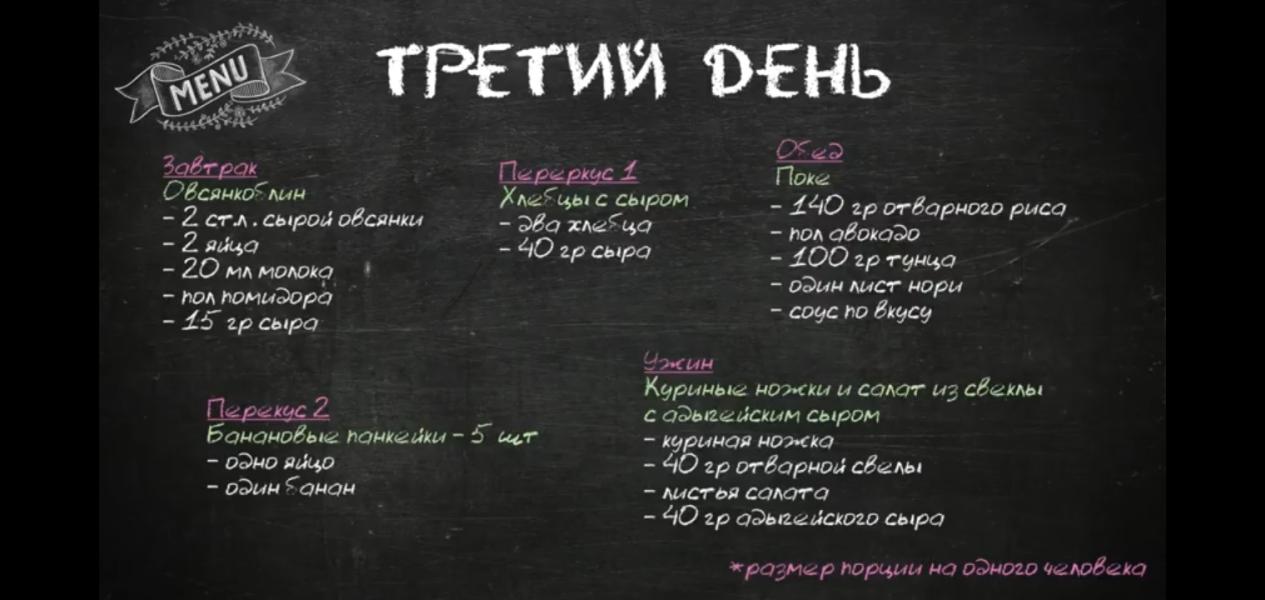 MENU
ТРЕТИЙ ДЕНЬ
Завтрак
Овсянкоблин
- 2 ст.л. сырой овсянки
- 2 яйца
- 20 мл молока
- пол помидора
- 15 гр сыра
Переркус 1
Хлебцы с сыром
- два хлебца
- 40 гр сыра
Обед
Поке
- 140 гр отварного риса
- пол авокадо
- 100 гр тунца
- один лист нори
- соус по вкусу
Перекус 2
Банановые панкейки - 5 шт
- одно яйцо
- один банан
Ужин
Куриные ножки и салат из свеклы
с адыгейским сыром
- куриная ножка
- 40 гр отварной свелы
- листья салата
- 40 гр адыгейского сыра
*размер порции на одного человека